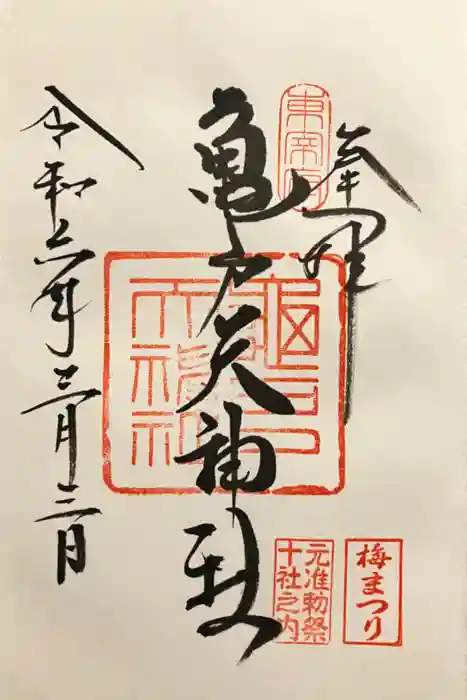 奉拝
東宰府
亀戸天神社
龜戸天神社
令和六年三月三日
元准勅祭
十社之内
梅まつり